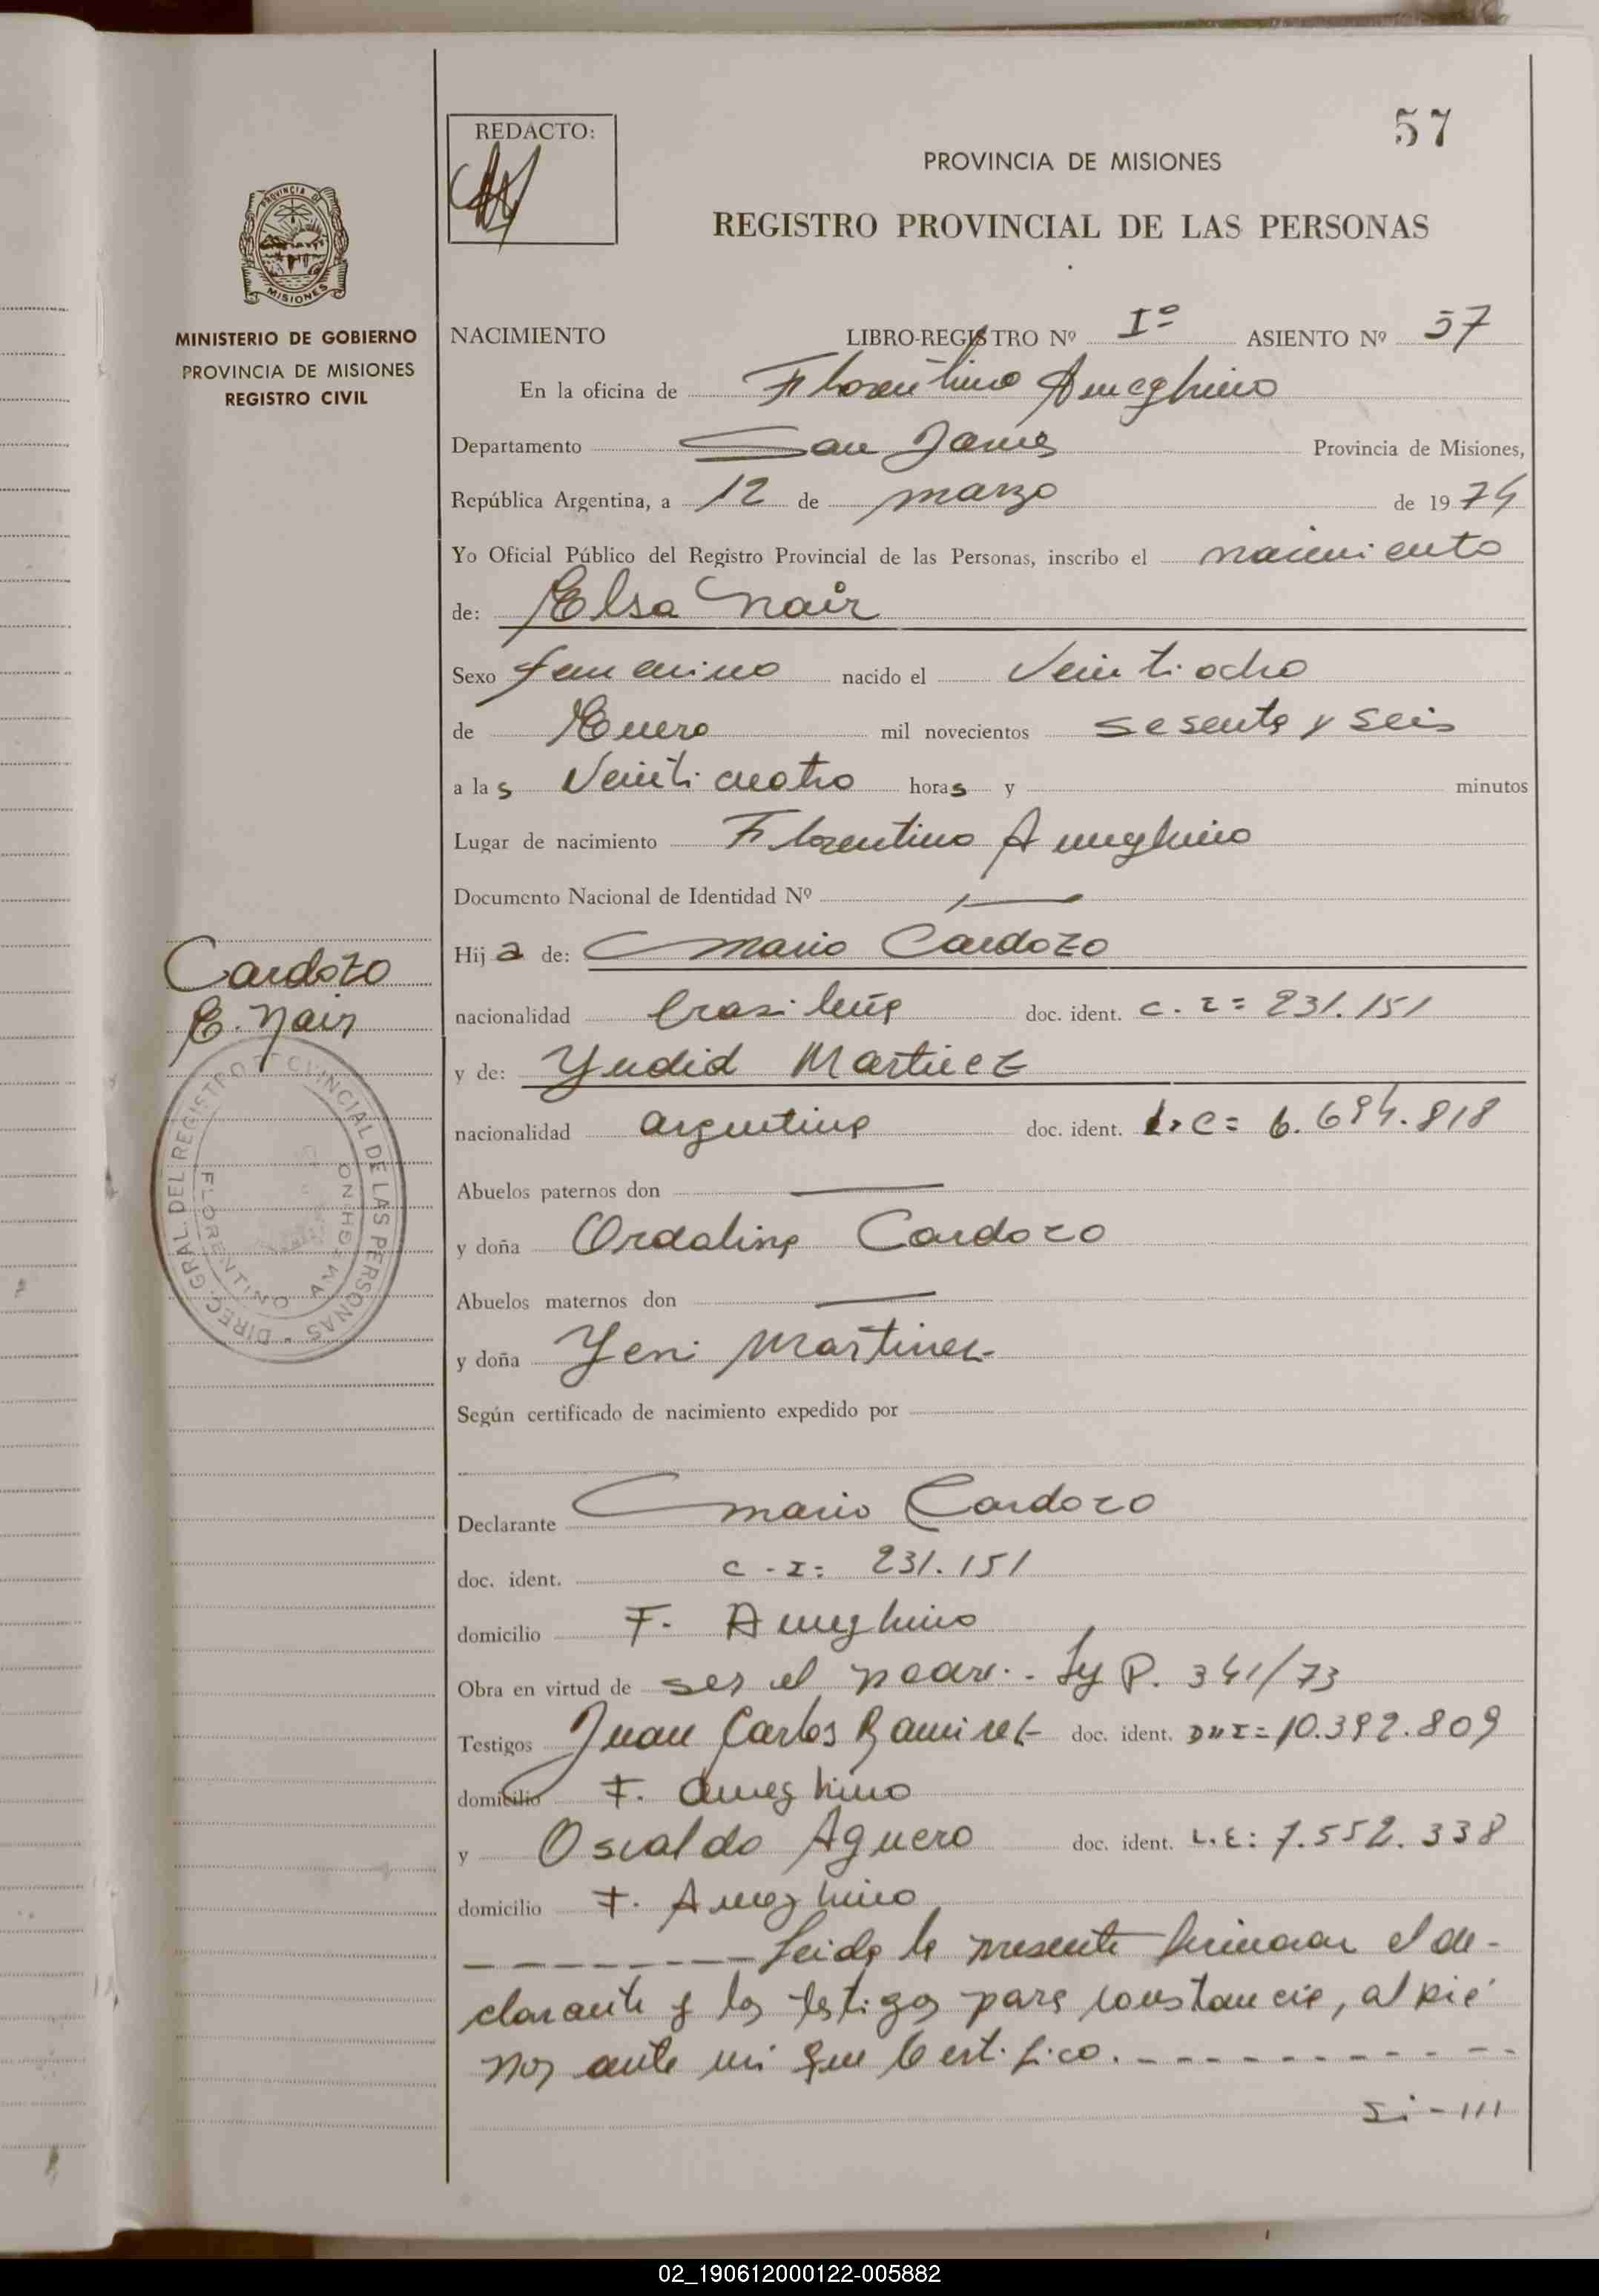 57
REDACTO:
PROVINCIA DE MISIONES
REGISTRO PROVINCIAL DE LAS PERSONAS
PROVINCIA DE
MISIONES
MINISTERIO DE GOBIERNO
PROVINCIA DE MISIONES
REGISTRO CIVIL
NACIMIENTO LIBRO-REGISTRO Nº Iº ASIENTO Nº 57
En la oficina de Florentino Ameghino
Departamento San Javier Provincia de Misiones,
República Argentina, a 12 de marzo de 1974
Yo Oficial Público del Registro Provincial de las Personas, inscribo el nacimiento
de: Elsa Nair
Sexo femenino nacido el Veintiocho
de Enero mil novecientos sesenta y seis
a las Veinticuatro horas y minutos
Lugar de nacimiento Florentino Ameghino
Documento Nacional de Identidad Nº
Hija de: Mario Cardozo
Cardozo
E. Nair
nacionalidad brasileña doc. ident. C.I= 231.151
y de: Yudid Martinez
nacionalidad argentina doc. ident. L.C= 6.694.818
Abuelos paternos don
y doña Ordalina Cardozo
Abuelos maternos don
y doña Yeni Martinez
DIREC. GRAL. DEL REGISTRO PROVINCIAL DE LAS PERSONAS
FLORENTINO AMEGHINO
Según certificado de nacimiento expedido por
Declarante Mario Cardozo
doc. ident. C.I: 231.151
domicilio F. Ameghino
Obra en virtud de ser el padre.- Ley P. 341/73
Testigos Juan Carlos Ramirez doc. ident. DNI= 10.392.809
domicilio F. Ameghino
y Osvaldo Aguero doc. ident. L.E: 7.552.338
domicilio F. Ameghino
Leida la presente firman el de-
clarante y los testigos para constancia, al pie
nos ante mi que Certifico.
Si-///
02_190612000122-005882